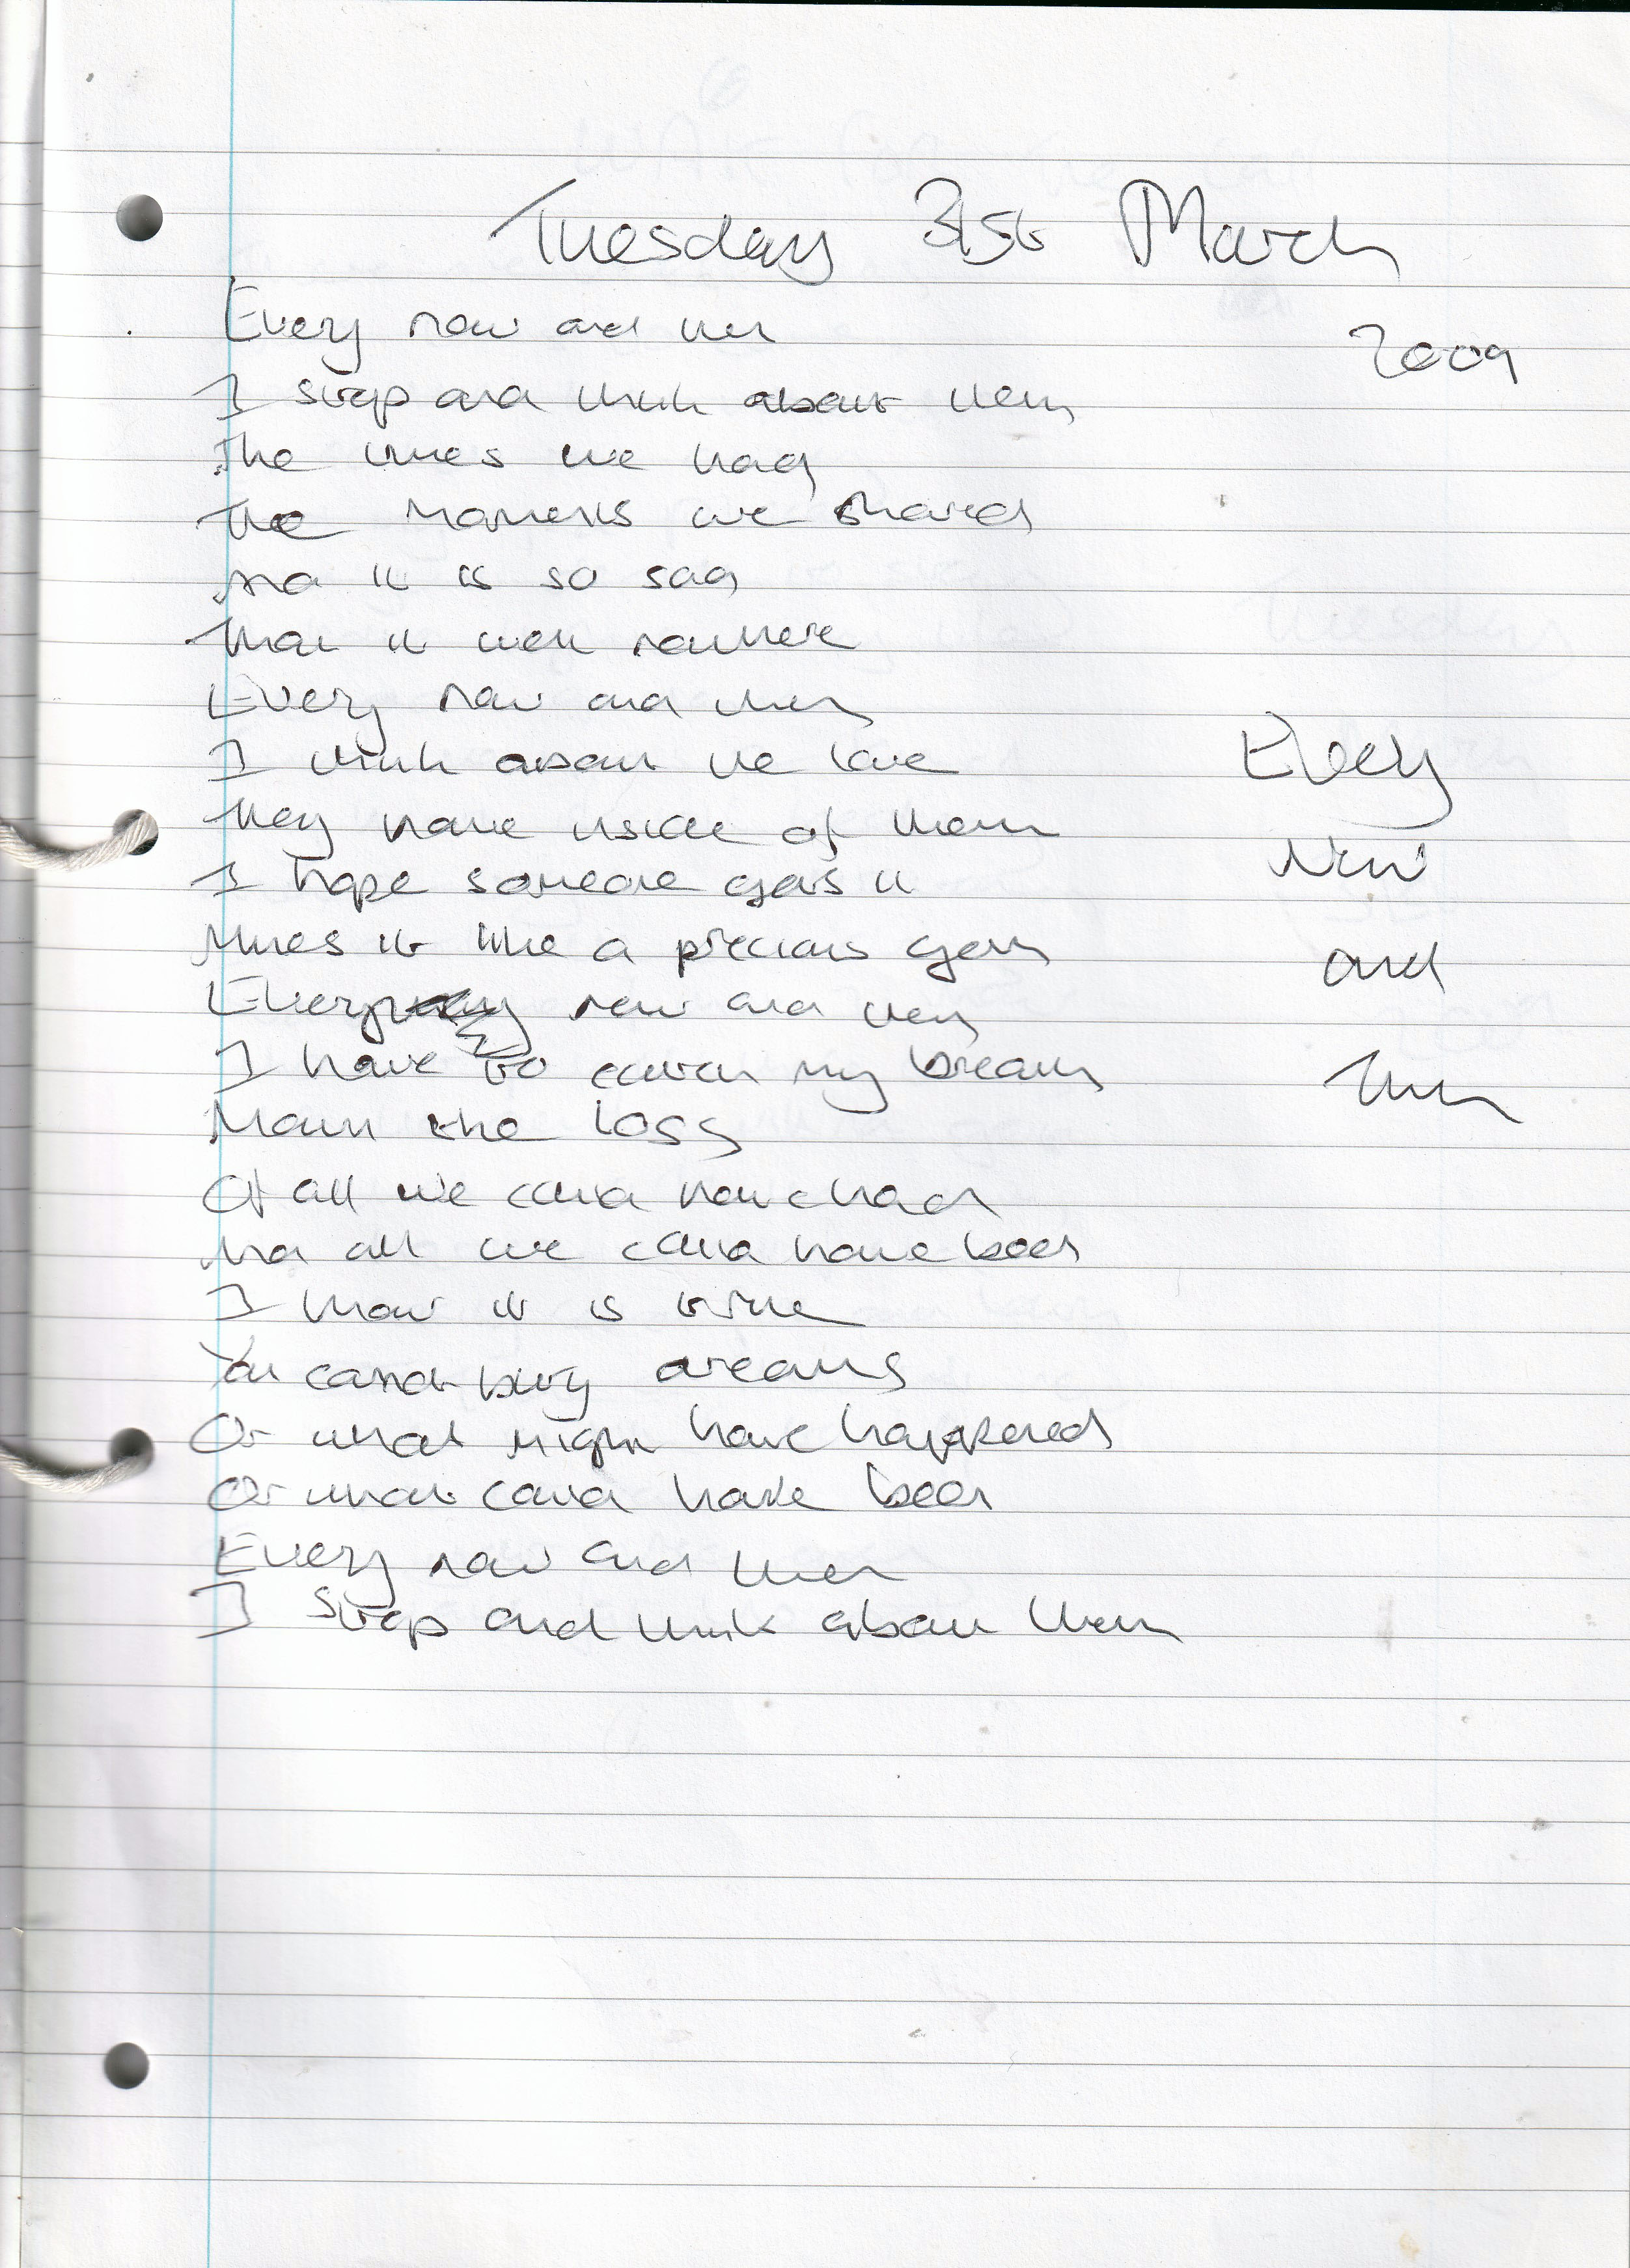 Tuesday 31st March
2009
Every now and then
I stop and think about them
The times we had
The moments we shared
And it is so sad
That it went nowhere
Every now and then
I think about the love
They have inside of them
I hope someone gets it
it like a precious gem
Every now and then
I have to catch my breath
Mourn the loss
Of all we could have had
And all we could have been
I know it is true
You cannot bury dreams
Or what might have happened
Or what could have been
Every now and then
I stop and think about them
Every
Now
and
Then